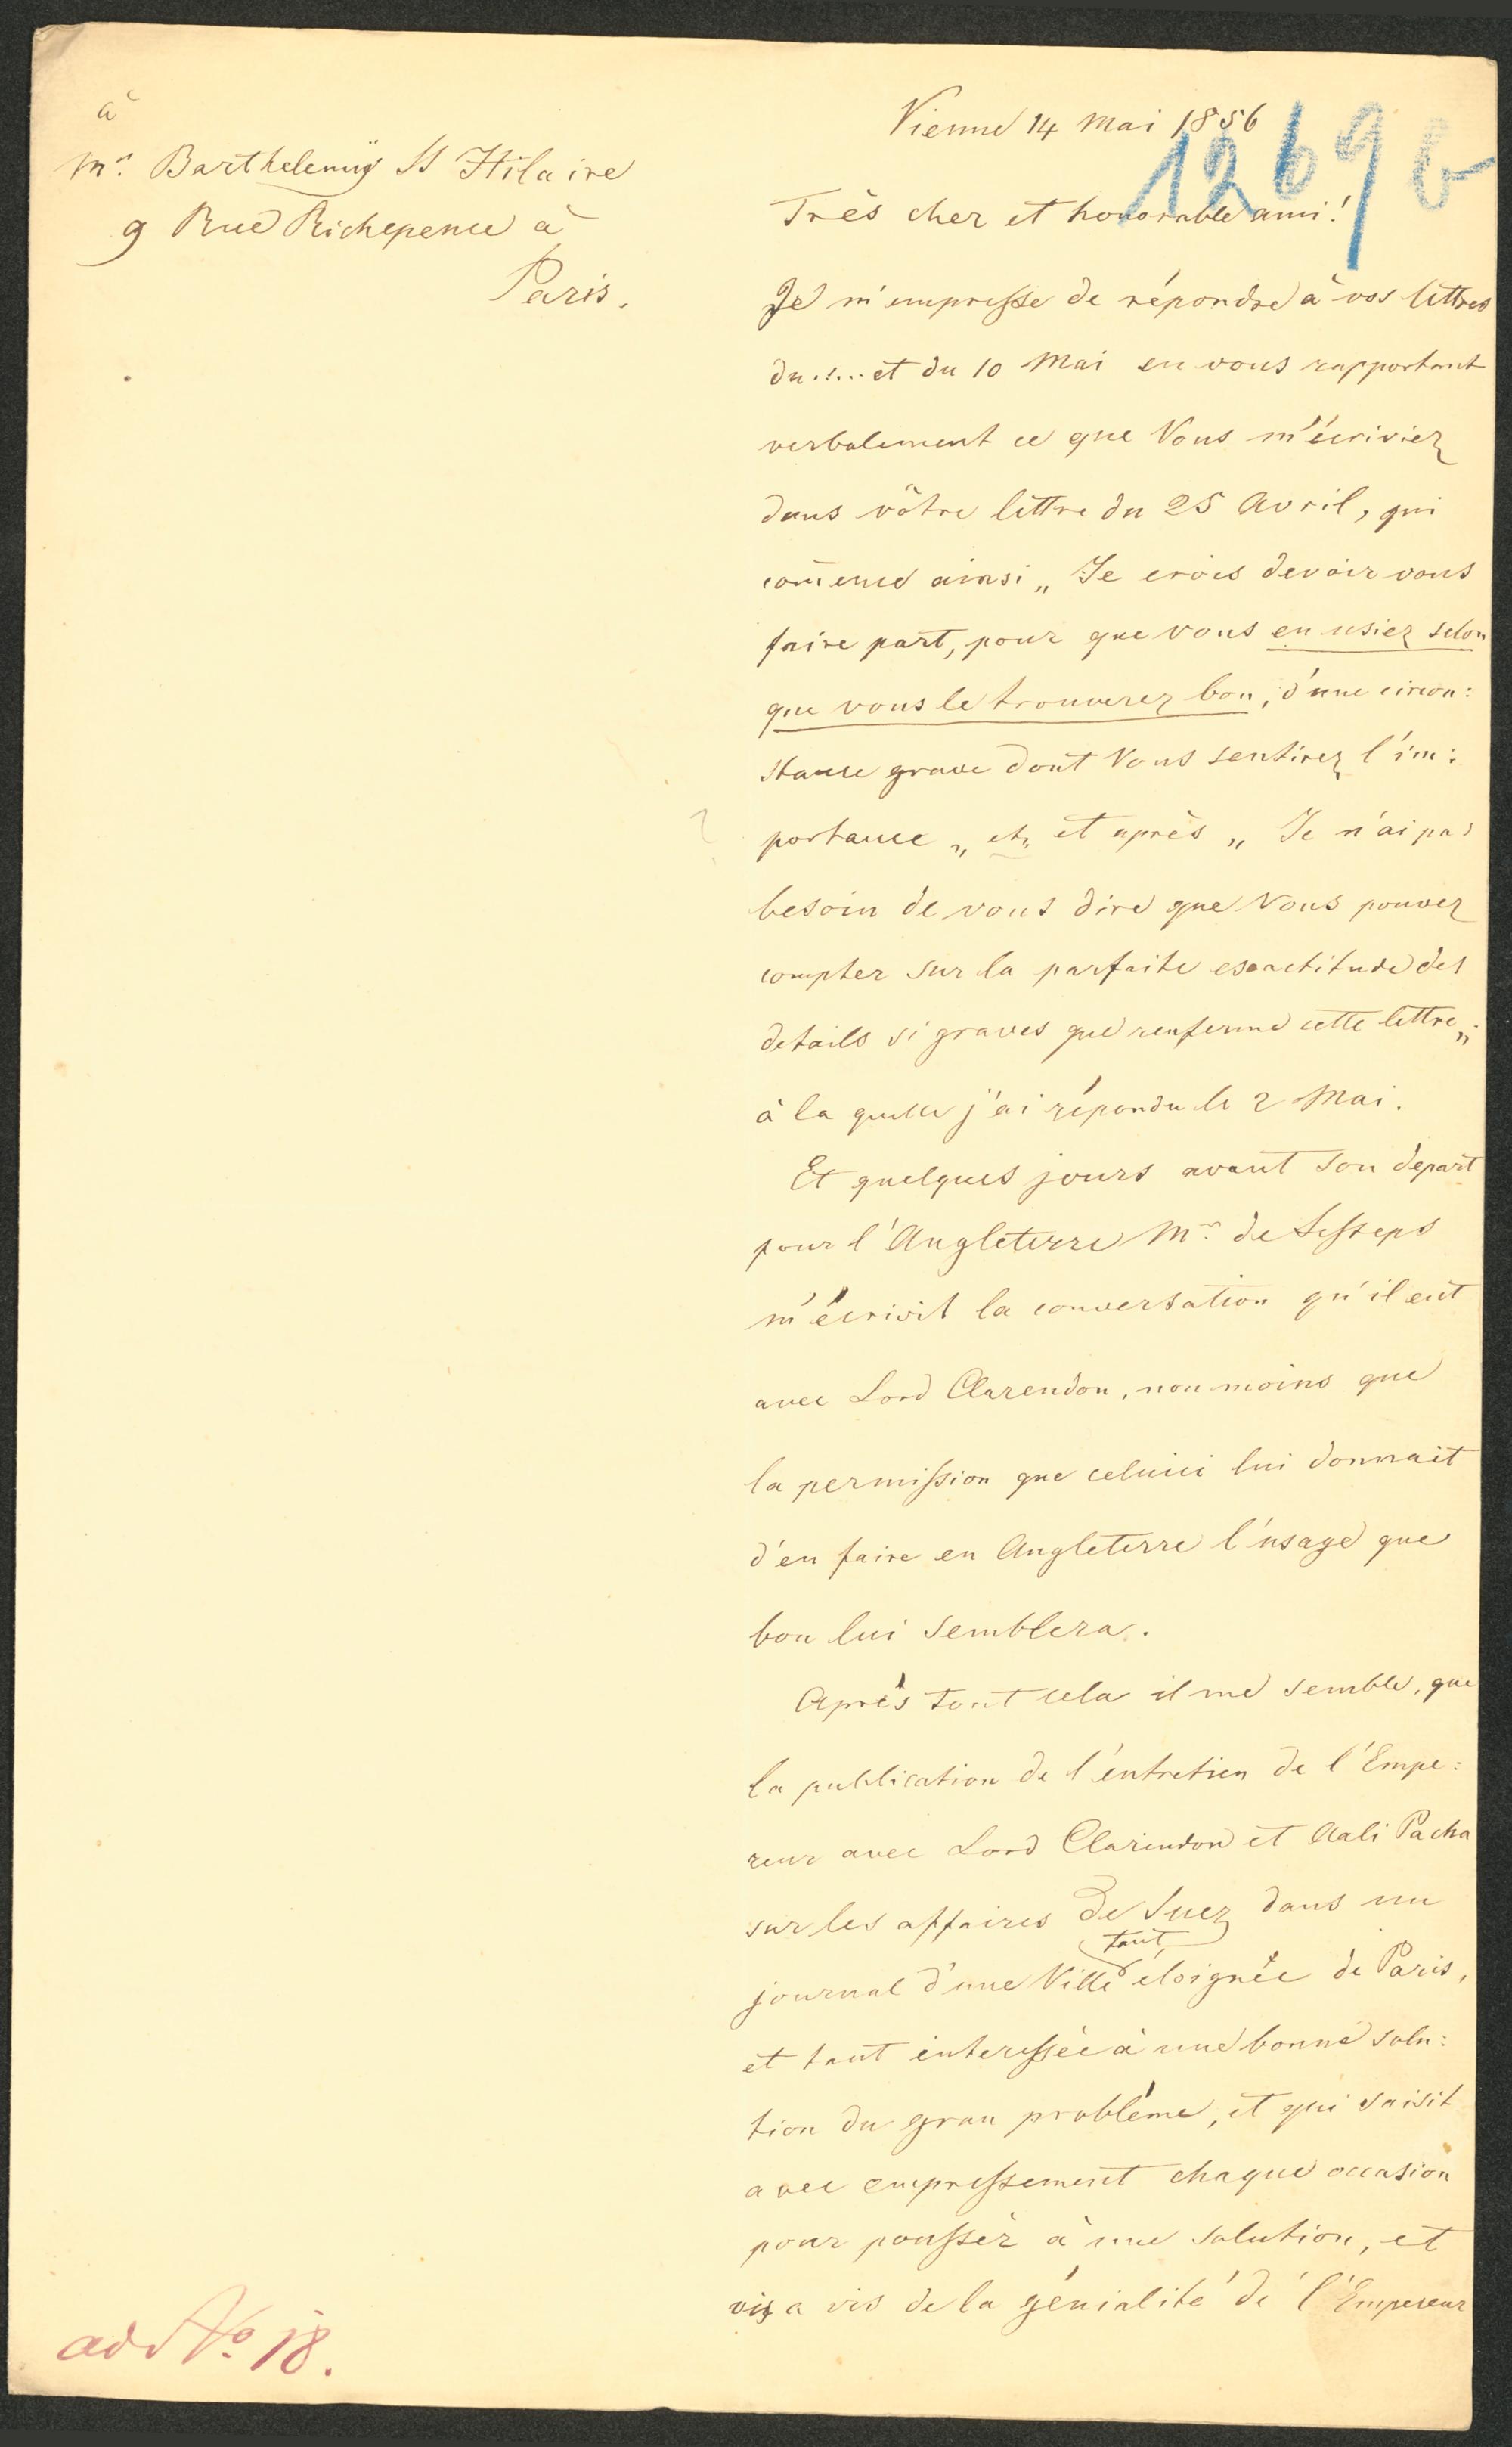 à
Mr. Barthelemÿ St Hilaire
9 Rue Richepence à
Paris.
Vienne 14 Mai 1856
1269 b
Très cher et honorable ami!
Je m'empresse de répondre à vos lettres
du .!... et du 10 Mai en vous rapportant
verbalement ce que Vous m'écriviez
dans vôtre lettre du 25 Avril, qui
com̄ence ainsi „ Je crois devoir vous
faire part, pour que vous en usiez selon
que vous le trouverez bon, d'une circon:
stance grave dont Vous sentirez l'im:
portance „ et„ et après „ Je n'ai pas
besoin de vous dire que Vous pouvez
compter sur la parfaite exactitude des
details si graves que renferme cette lettre„
à la quelle j'ai répondu le 2 Mai.
Et quelques jours avant son départ
pour l'Angleterre Mr. de Lesseps
m'écrivit la conversation qu'il eut
avec Lord Clarendon, non moins que
la permission que celuici lui donnait
d'en faire en Angleterre l'usage que
bon lui semblera.
Après tout cela il me semble, que
la publication de l'entretien de l'Empe:
reur avec Lord Clarendon et Aali Pacha
sur les affaires de Suez dans un
tant
journal d'une Ville éloignée de Paris,
et tant interessée à une bonne solu:
tion du gran problême, et qui saisit
avec empressement chaque occasion
pour pousser à une solution, et
vis a vis de la génialité de l'Empereur
ad No. 18.